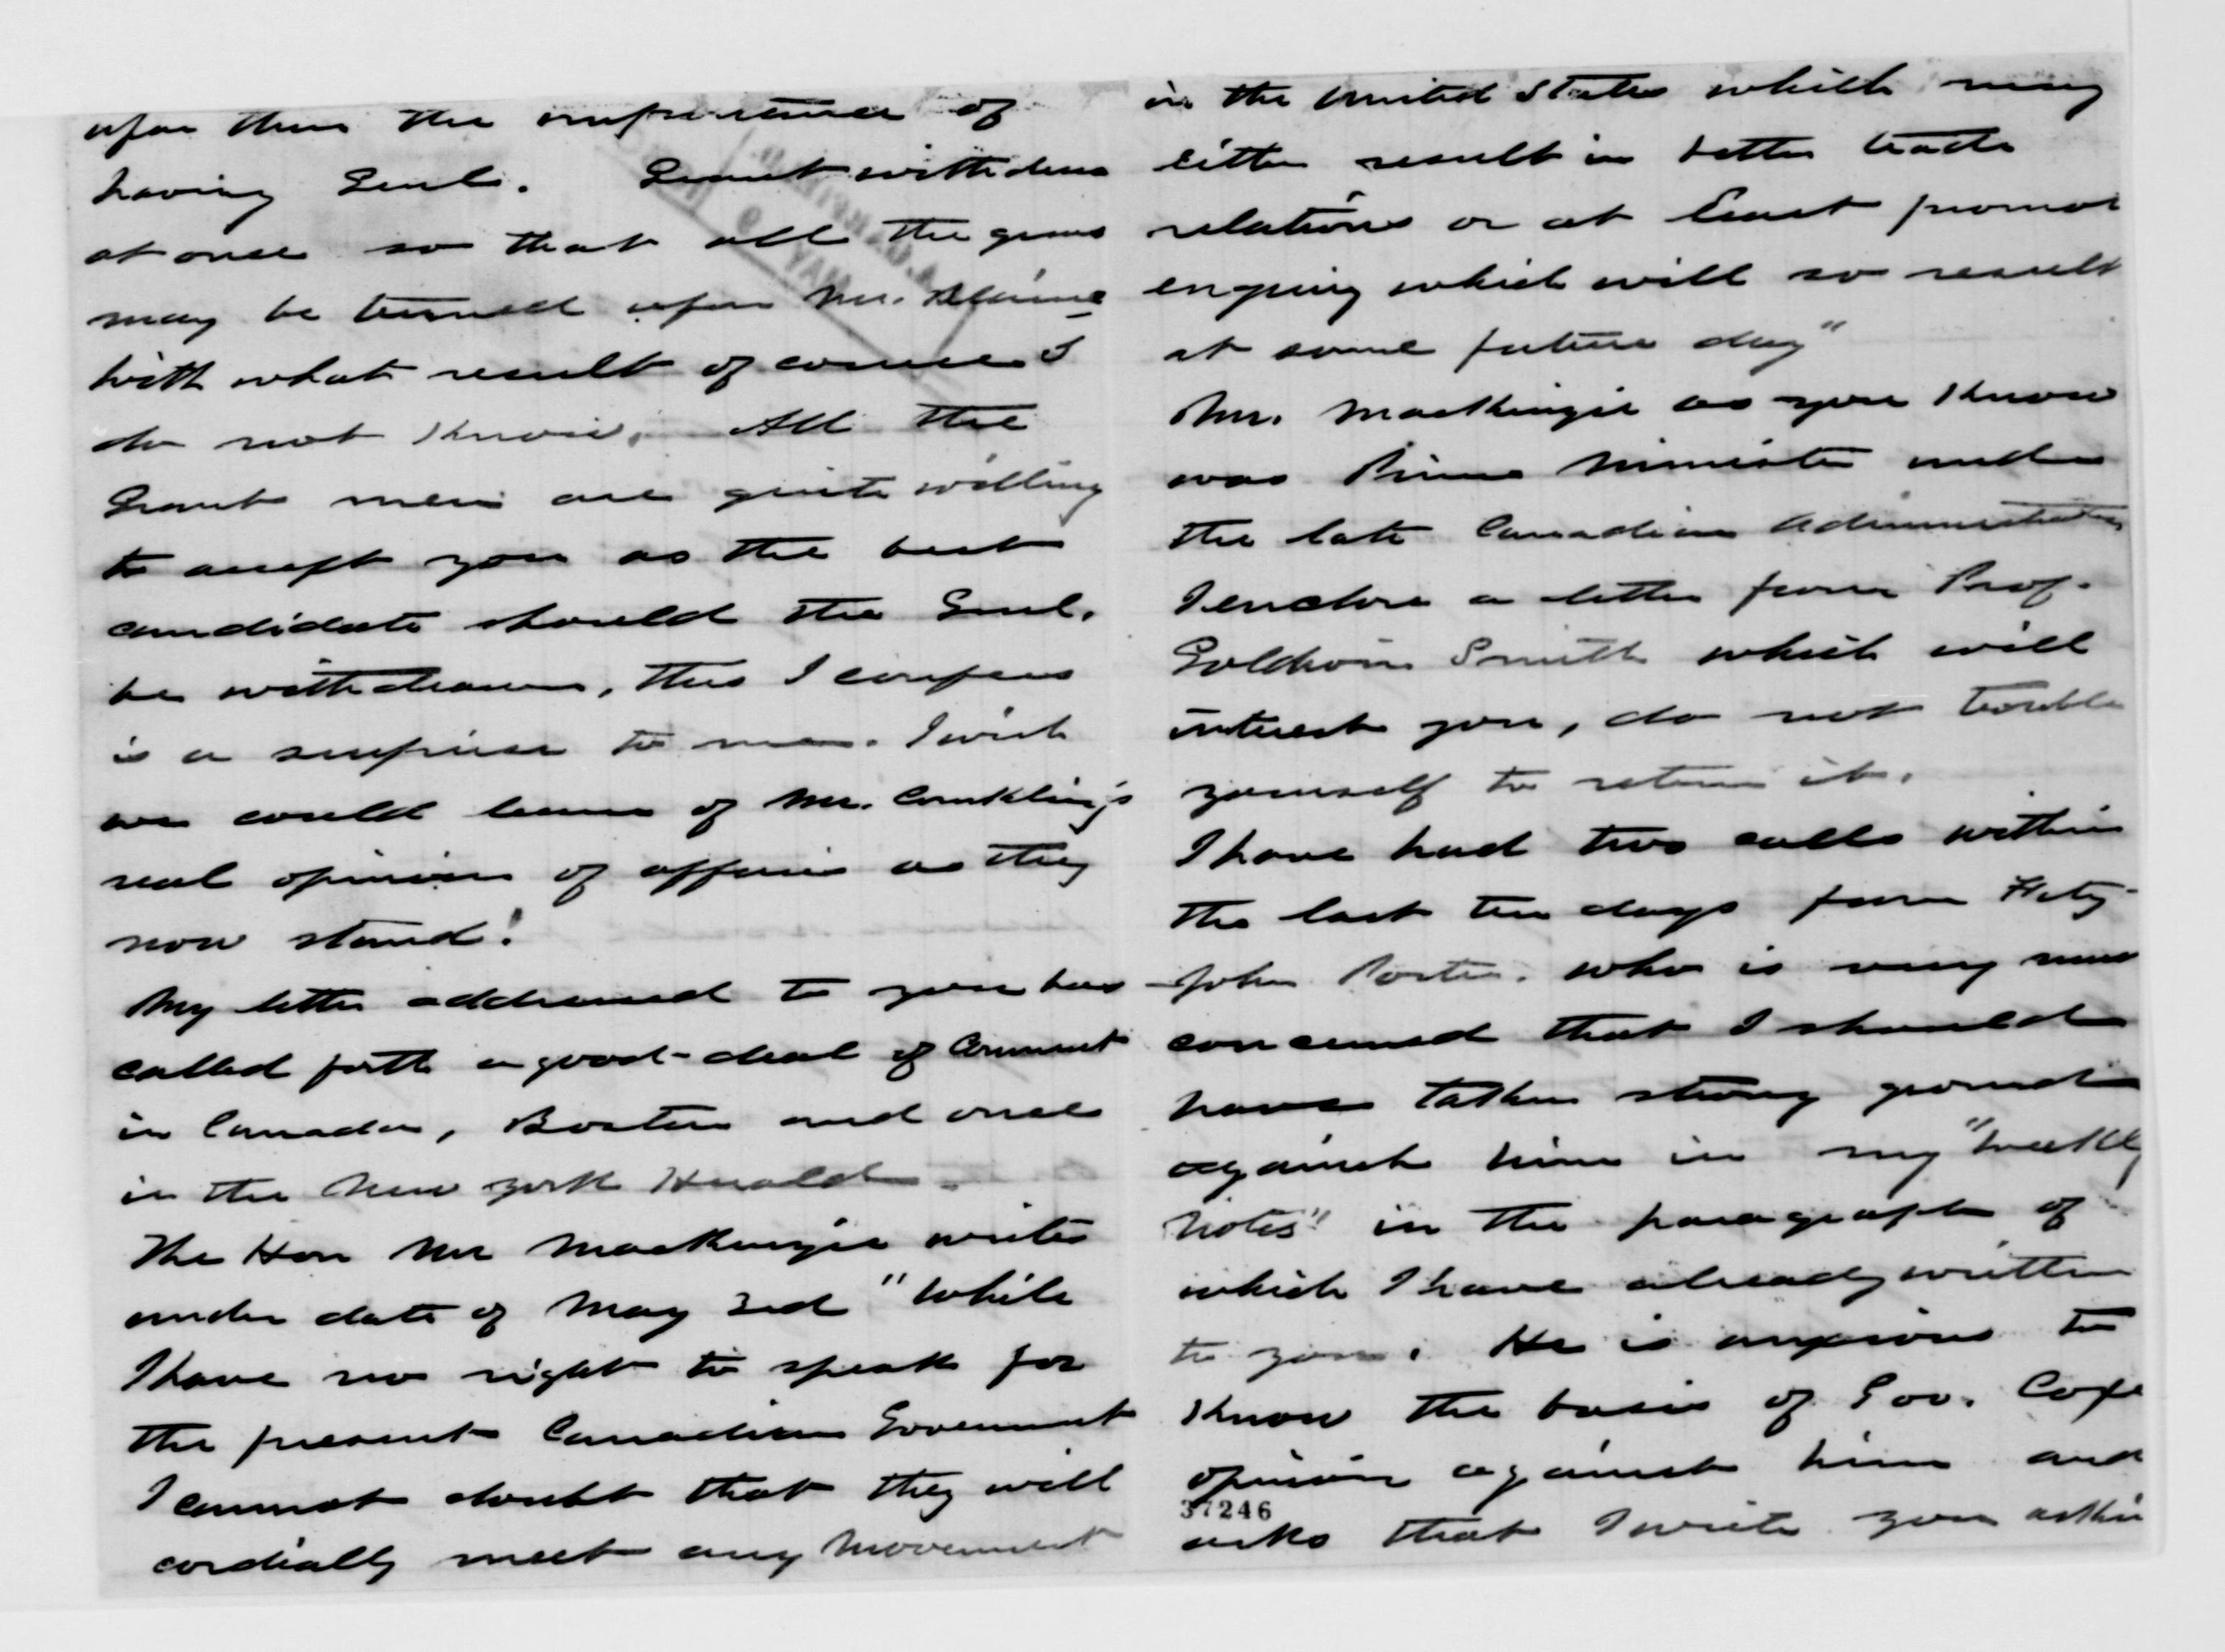 upon them the importance of
having Genl. Grant withdrawn
at once so that all the guns
may be turned upon Mr. Blaine
with what result of course I
do not know. All the
Grant men are quite willing
to accept you as the best
candidate should the Genl.
be withdrawn, this I confess
is a surprise to me. I wish
we could learn of Mr. Conkling's
real opinion of affairs as they
now stand!
My letter addressed to you has
called forth a good-deal of Comment
in Canada, Boston and once
in the New York Herald.
The Hon Mr MacKenzie writes
under date of May 3rd "While
I have no right to speak for
the present Canadian Government
I cannot doubt that they will
cordially meet any movement
in the United States which may
either result in better trade
relations or at least promot
enquiry which will so result
at some future day"
Mr. MacKenzie as you know
was Prime Minister under
the late Canadian Administration
I enclose a letter from Prof.
Goldwin Smith which will
interest you, do not trouble
yourself to return it.
I have had two calls within
the last ten days from Fitz-
John Porter. who is very much
concerned that I should
have taken strong ground
against him in my "Weekly
Notes" in the paragraph of
which I have already written
to you. He is anxious to
know the basis of Gov. Cox's
opinion against him and
37246
asks that I write you askin